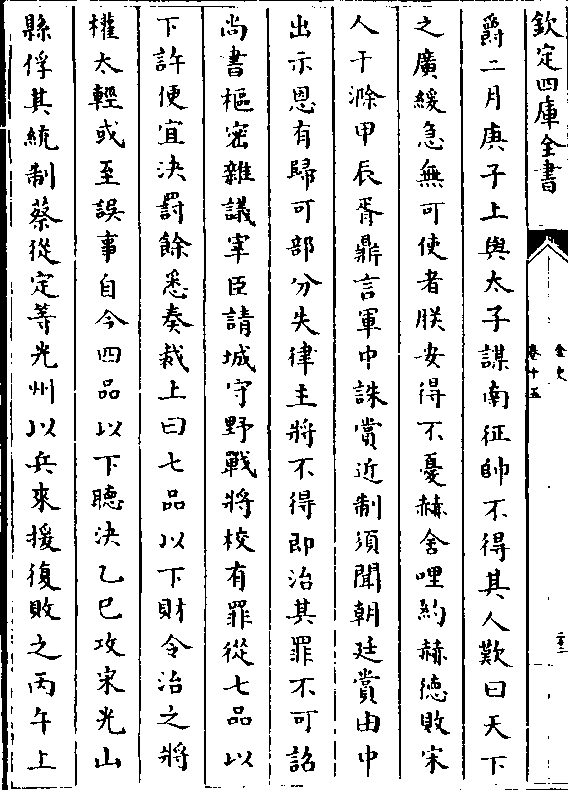 欽定四庫全書
金史
卷十五
爵二月庚子上與太子謀南征帥不得其人歎曰天下
之廣緩急無可使者朕安得不憂赫舍哩約赫德敗宋
人于滁甲辰胥鼎言軍中誅賞近制須聞朝廷賞由中
出示恩有歸可部分失律主將不得即治其罪不可詔
尚書樞密雜議宰臣請城守野戰將校有罪從七品以
下許便宜決罰餘悉奏裁上曰七品以下財令治之將
權太輕或至誤事自今四品以下聽決乙巳攻宋光山
縣俘其統制蔡從定等光州以兵來援復敗之丙午上